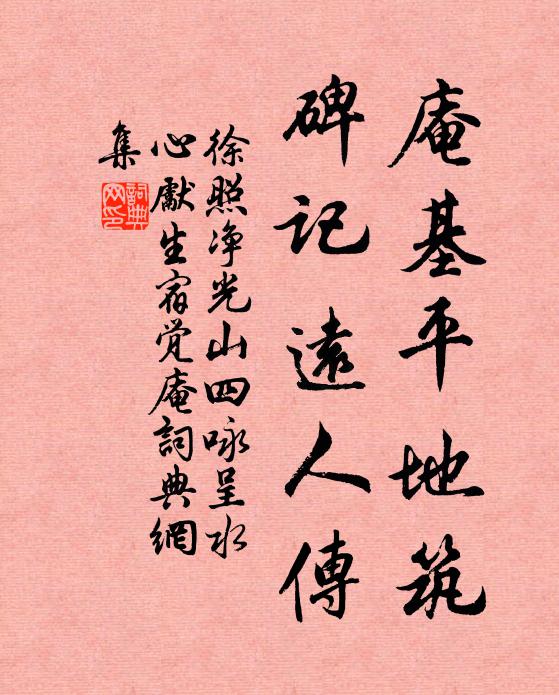 庵基平地筑
碑记遠人傳
徐照净光山四咏呈水
心獻生宿觉庵詞典網
集
詞典网印